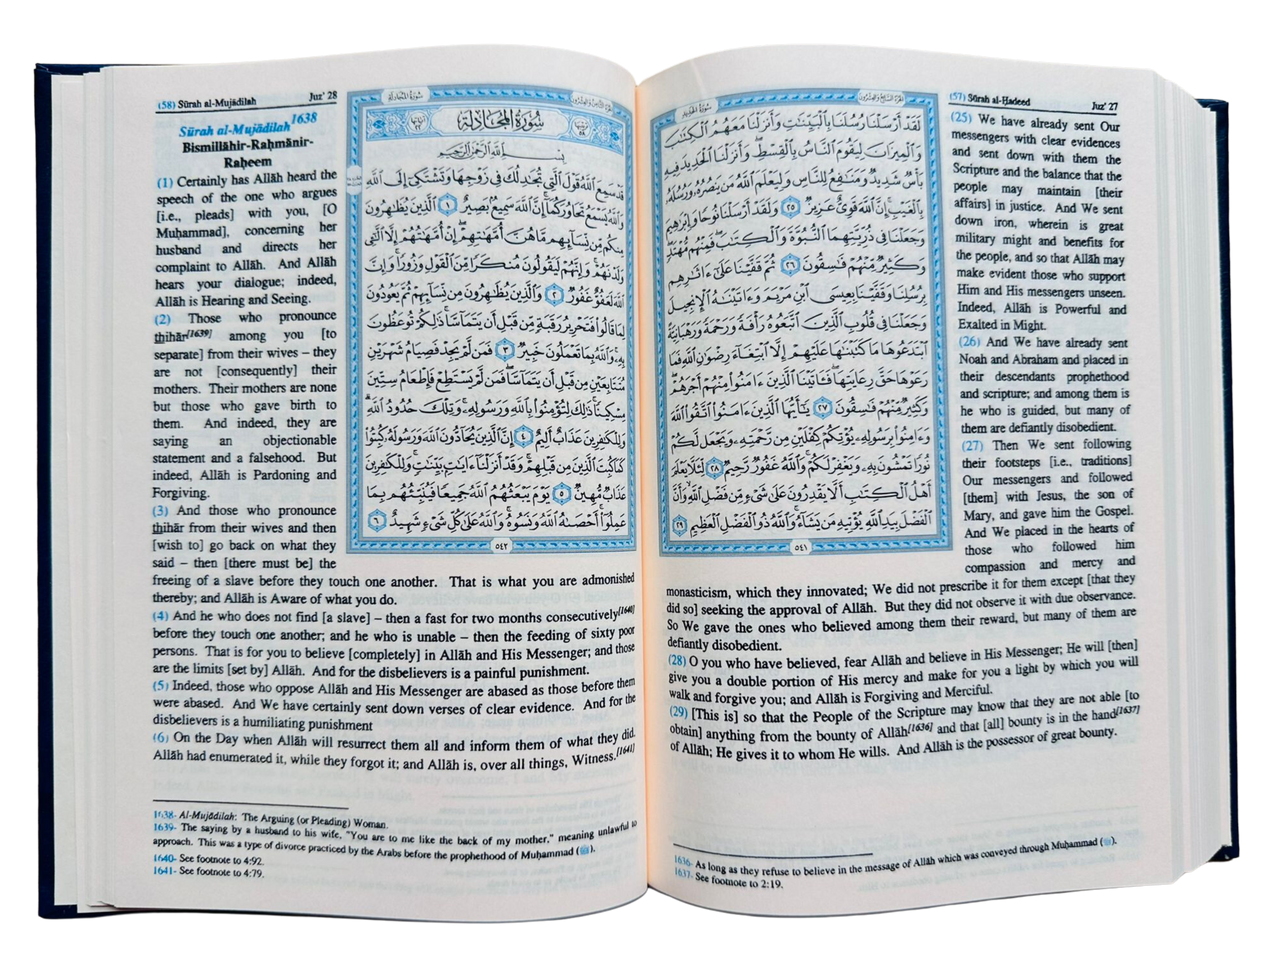 (57) Sūrah al-Ḥadeed
Juz' 27
(25) We have already sent Our
messengers with clear evidences
and sent down with them the
Scripture and the balance that the
people may maintain [their
affairs] in justice. And We sent
down iron, wherein is great
military might and benefits for
the people, and so that Allāh may
make evident those who support
Him and His messengers unseen.
Indeed, Allāh is Powerful and
Exalted in Might.
(26) And We have already sent
Noah and Abraham and placed in
their descendants prophethood
and scripture; and among them is
he who is guided, but many of
them are defiantly disobedient.
(27) Then We sent following
their footsteps [i.e., traditions]
Our messengers and followed
[them] with Jesus, the son of
Mary, and gave him the Gospel.
And We placed in the hearts of
those who followed him
compassion and mercy and
monasticism, which they innovated; We did not prescribe it for them except [that they
did so] seeking the approval of Allāh. But they did not observe it with due observance.
So We gave the ones who believed among them their reward, but many of them are
defiantly disobedient.
(28) O you who have believed, fear Allāh and believe in His Messenger; He will [then]
give you a double portion of His mercy and make for you a light by which you will
walk and forgive you; and Allāh is Forgiving and Merciful.
(29) [This is] so that the People of the Scripture may know that they are not able [to
obtain] anything from the bounty of Allāh[1636] and that [all] bounty is in the hand[1637]
of Allāh; He gives it to whom He wills. And Allāh is the possessor of great bounty.
الجزء السابع والعشرون
سورة الحديد
لَقَدْ أَرْسَلْنَا رُسُلَنَا بِالْبَيِّنَاتِ وَأَنزَلْنَا مَعَهُمُ الْكِتَابَ
وَالْمِيزَانَ لِيَقُومَ النَّاسُ بِالْقِسْطِ وَأَنزَلْنَا الْحَدِيدَ فِيهِ
بَأْسٌ شَدِيدٌ وَمَنَافِعُ لِلنَّاسِ وَلِيَعْلَمَ اللَّهُ مَن يَنصُرُهُ وَرُسُلَهُ
بِالْغَيْبِ إِنَّ اللَّهَ قَوِيٌّ عَزِيزٌ ٢٥ وَلَقَدْ أَرْسَلْنَا نُوحًا وَإِبْرَاهِيمَ
وَجَعَلْنَا فِي ذُرِّيَّتِهِمَا النُّبُوَّةَ وَالْكِتَابَ فَمِنْهُم مُّهْتَدٍ
وَكَثِيرٌ مِّنْهُمْ فَاسِقُونَ ٢٦ ثُمَّ قَفَّيْنَا عَلَىٰ آثَارِهِم
بِرُسُلِنَا وَقَفَّيْنَا بِعِيسَى ابْنِ مَرْيَمَ وَآتَيْنَاهُ الْإِنجِيلَ
وَجَعَلْنَا فِي قُلُوبِ الَّذِينَ اتَّبَعُوهُ رَأْفَةً وَرَحْمَةً وَرَهْبَانِيَّةً
ابْتَدَعُوهَا مَا كَتَبْنَاهَا عَلَيْهِمْ إِلَّا ابْتِغَاءَ رِضْوَانِ اللَّهِ فَمَا
رَعَوْهَا حَقَّ رِعَايَتِهَا فَآتَيْنَا الَّذِينَ آمَنُوا مِنْهُمْ أَجْرَهُمْ
وَكَثِيرٌ مِّنْهُمْ فَاسِقُونَ ٢٧ يَا أَيُّهَا الَّذِينَ آمَنُوا اتَّقُوا اللَّهَ
وَآمِنُوا بِرَسُولِهِ يُؤْتِكُمْ كِفْلَيْنِ مِن رَّحْمَتِهِ وَيَجْعَل لَّكُمْ
نُورًا تَمْشُونَ بِهِ وَيَغْفِرْ لَكُمْ وَاللَّهُ غَفُورٌ رَّحِيمٌ ٢٨ لِّئَلَّا يَعْلَمَ
أَهْلُ الْكِتَابِ أَلَّا يَقْدِرُونَ عَلَىٰ شَيْءٍ مِّن فَضْلِ اللَّهِ وَأَنَّ
الْفَضْلَ بِيَدِ اللَّهِ يُؤْتِيهِ مَن يَشَاءُ وَاللَّهُ ذُو الْفَضْلِ الْعَظِيمِ ٢٩
٥٤١
1636- As long as they refuse to believe in the message of Allāh which was conveyed through Muḥammad (ﷺ).
1637- See footnote to 2:19.
(58) Sūrah al-Mujādilah
Juz' 28
Sūrah al-Mujādilah1638
Bismillāhir-Raḥmānir-
Raḥeem
(1) Certainly has Allāh heard the
speech of the one who argues
[i.e., pleads] with you, [O
Muḥammad], concerning her
husband and directs her
complaint to Allāh. And Allāh
hears your dialogue; indeed,
Allāh is Hearing and Seeing.
(2) Those who pronounce
ṭhihār[1639] among you [to
separate] from their wives – they
are not [consequently] their
mothers. Their mothers are none
but those who gave birth to
them. And indeed, they are
saying an objectionable
statement and a falsehood. But
indeed, Allāh is Pardoning and
Forgiving.
(3) And those who pronounce
ṭhihār from their wives and then
[wish to] go back on what they
said – then [there must be] the
freeing of a slave before they touch one another. That is what you are admonished
thereby; and Allāh is Aware of what you do.
(4) And he who does not find [a slave] – then a fast for two months consecutively[1640]
before they touch one another; and he who is unable – then the feeding of sixty poor
persons. That is for you to believe [completely] in Allāh and His Messenger; and those
are the limits [set by] Allāh. And for the disbelievers is a painful punishment.
(5) Indeed, those who oppose Allāh and His Messenger are abased as those before them
were abased. And We have certainly sent down verses of clear evidence. And for the
disbelievers is a humiliating punishment
(6) On the Day when Allāh will resurrect them all and inform them of what they did.
Allāh had enumerated it, while they forgot it; and Allāh is, over all things, Witness.[1641]
الجزء الثامن والعشرون
سورة المجادلة
سُورَةُ المُجَادلة
بِسْمِ اللَّهِ الرَّحْمَٰنِ الرَّحِيمِ
قَدْ سَمِعَ اللَّهُ قَوْلَ الَّتِي تُجَادِلُكَ فِي زَوْجِهَا وَتَشْتَكِي إِلَى اللَّهِ
وَاللَّهُ يَسْمَعُ تَحَاوُرَكُمَا إِنَّ اللَّهَ سَمِيعٌ بَصِيرٌ ١ الَّذِينَ يُظَاهِرُونَ
مِنكُم مِّن نِّسَائِهِم مَّا هُنَّ أُمَّهَاتِهِمْ إِنْ أُمَّهَاتُهُمْ إِلَّا اللَّائِي
وَلَدْنَهُمْ وَإِنَّهُمْ لَيَقُولُونَ مُنكَرًا مِّنَ الْقَوْلِ وَزُورًا وَإِنَّ
اللَّهَ لَعَفُوٌّ غَفُورٌ ٢ وَالَّذِينَ يُظَاهِرُونَ مِن نِّسَائِهِمْ ثُمَّ يَعُودُونَ
لِمَا قَالُوا فَتَحْرِيرُ رَقَبَةٍ مِّن قَبْلِ أَن يَتَمَاسَّا ذَٰلِكُمْ تُوعَظُونَ
بِهِ وَاللَّهُ بِمَا تَعْمَلُونَ خَبِيرٌ ٣ فَمَن لَّمْ يَجِدْ فَصِيَامُ شَهْرَيْنِ
مُتَتَابِعَيْنِ مِن قَبْلِ أَن يَتَمَاسَّا فَمَن لَّمْ يَسْتَطِعْ فَإِطْعَامُ سِتِّينَ
مِسْكِينًا ذَٰلِكَ لِتُؤْمِنُوا بِاللَّهِ وَرَسُولِهِ وَتِلْكَ حُدُودُ اللَّهِ
وَلِلْكَافِرِينَ عَذَابٌ أَلِيمٌ ٤ إِنَّ الَّذِينَ يُحَادُّونَ اللَّهَ وَرَسُولَهُ كُبِتُوا
كَمَا كُبِتَ الَّذِينَ مِن قَبْلِهِمْ وَقَدْ أَنزَلْنَا آيَاتٍ بَيِّنَاتٍ وَلِلْكَافِرِينَ
عَذَابٌ مُّهِينٌ ٥ يَوْمَ يَبْعَثُهُمُ اللَّهُ جَمِيعًا فَيُنَبِّئُهُم بِمَا
عَمِلُوا أَحْصَاهُ اللَّهُ وَنَسُوهُ وَاللَّهُ عَلَىٰ كُلِّ شَيْءٍ شَهِيدٌ ٦
٥٤٢
1638- Al-Mujādilah: The Arguing (or Pleading) Woman.
1639- The saying by a husband to his wife, "You are to me like the back of my mother," meaning unlawful to
approach. This was a type of divorce practiced by the Arabs before the prophethood of Muḥammad (ﷺ).
1640- See footnote to 4:92.
1641- See footnote to 4:79.